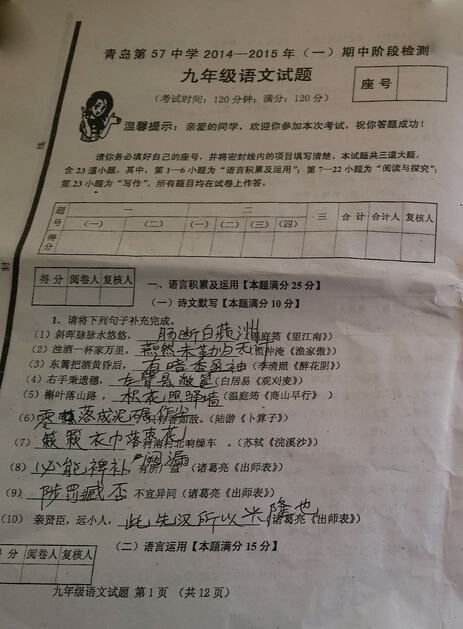 青岛第57中学2014—2015年（一）期中阶段检测
九年级语文试题
座号
（考试时间：120分钟；满分：120分）
温馨提示：亲爱的同学，欢迎你参加本次考试，祝你答题成功！
请你务必填好自己的座号，并将密封线内的项目填写清楚。本试题共三道大题，
含23道小题。其中，第1—6小题为“语言积累及运用”；第7—22小题为“阅读与探究”；
第23小题为“写作”。所有题目均在试卷上作答。
题号 一 二 三 合计 合计人 复核人
（一） （二） （一） （二） （三） （四）
得分
线
封
得分 阅卷人 复核人
一、语言积累及运用【本题满分25分】
（一）诗文默写【本题满分10分】
1. 请将下列句子补充完成。
（1）斜晖脉脉水悠悠， 肠断白蘋洲 温庭筠《望江南》）
（2）浊酒一杯家万里， 燕然未勒归无 范仲淹《渔家傲》）
（3）东篱把酒黄昏后， 有暗香盈袖（李清照《醉花阴》）
（4）右手秉遗穗， 左臂悬敝筐（白居易《观刈麦》）
（5）槲叶落山路， 枳花照驿墙（温庭筠《商山早行》）
（6） 零 落成泥碾作尘 只有香如故。（陆游《卜算子》）
（7） 簌簌衣巾落枣花 村南村北响缫车 。（苏轼《浣溪沙》）
（8） 必能裨补阙漏 有所广益（诸葛亮《出师表》）
（9） 陟罚臧否 不宜异同（诸葛亮《出师表》）
（10） 亲贤臣，远小人， 此先汉所以兴隆也（诸葛亮《出师表》）
（二）语言运用【本题满分15分】
分 阅卷人 复核人
九年级语文试题 第1页 （共12页）